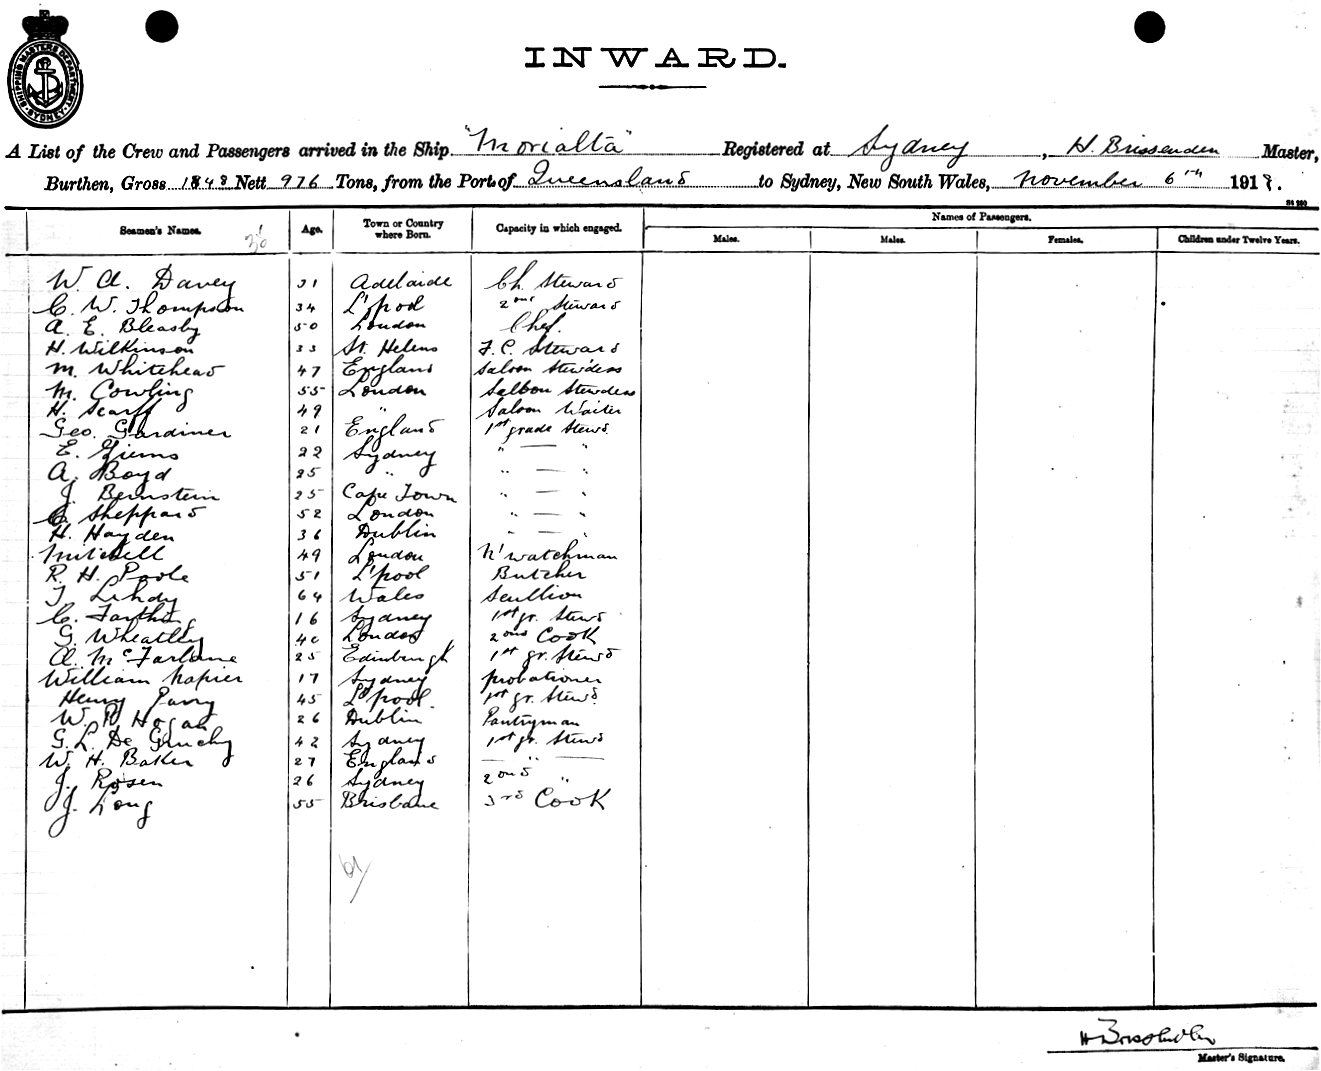 SHIPPING MASTERS DEPARTMENT SYDNEY
INWARD.
A List of the Crew and Passengers arrived in the Ship "Morialta" Registered at Sydney, H. Brissenden Master,
Burthen, Gross 1848 Nett 976 Tons, from the Port of Queensland to Sydney, New South Wales, November 6th 1918.
Seamen's Names. Age. Town or Country where Born. Capacity in which engaged. Names of Passengers.
Males. Males. Females. Children under Twelve Years.
W. A. Davey 31 Adelaide Ch. Steward
C. W. Thompson 34 L'pool 2nd Steward
A. E. Bleasby 50 London Chef.
H. Wilkinson 33 St. Helens F.C. Steward
M. Whitehead 47 England Saloon Stewdess
M. Cowling 55 London Saloon Stewdess
H. Scarff 49 " Saloon Waiter
Geo. Gardiner 21 England 1st grade Stewd.
E. 22 Sydney " — "
A. Boyd 25 " " — "
J. Bernstein 25 Cape Town " — "
C. Sheppard 52 London " — "
H. Hayden 36 Dublin " — "
Mitchell 49 London N'watchman
R. H. Poole 51 L'pool Butcher
T. 64 Wales Scullion
C. Farthing 16 Sydney 1st gr. Stewd
G. Wheatley 40 London 2nd Cook
A. McFarlane 25 Edinburgh 1st gr. Stewd
William Napier 17 Sydney probationer
Henry Parry 45 L'pool. 1st gr. Stewd.
W. P. Hogan 26 Dublin Pantryman
G. L. De Gruchy 42 Sydney 1st gr. Stewd
W. H. Baker 27 England — " —
J. Rosen 26 Sydney 2nd "
J. Long 55 Brisbane 3rd Cook
H Brissenden
Master's Signature.